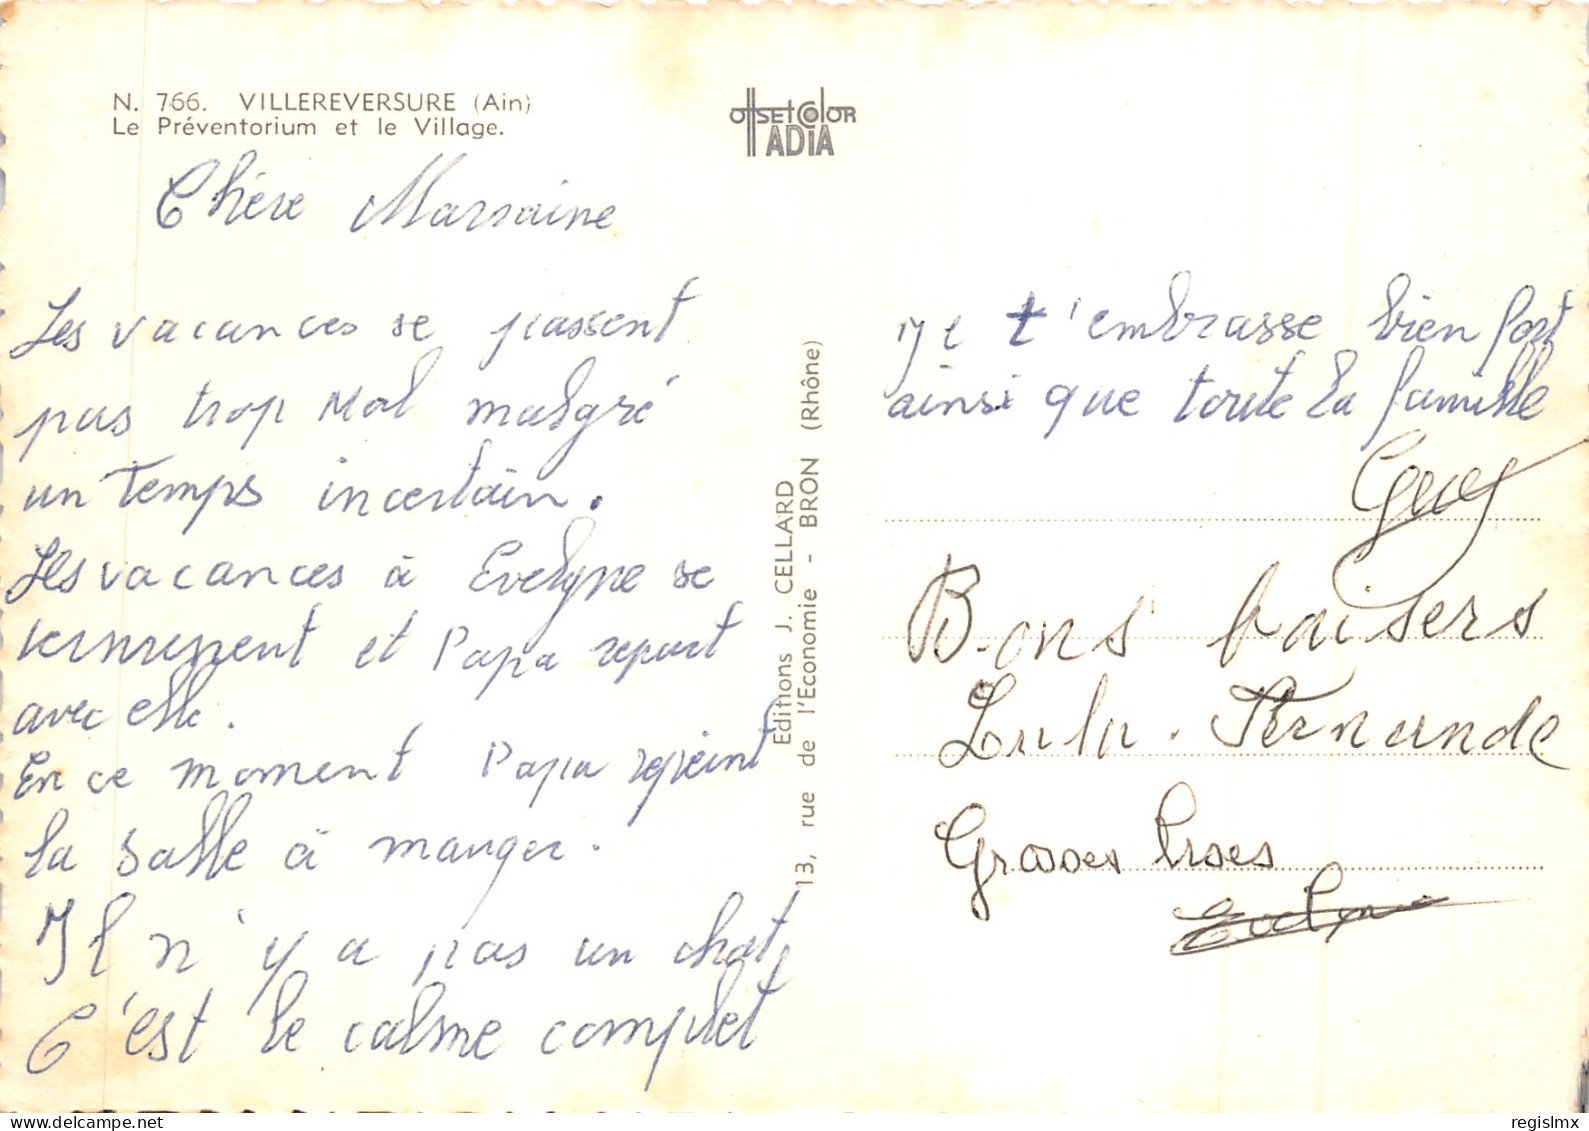 N. 766. VILLEREVERSURE (Ain)
Le Préventorium et le Village.
OffsetColor
ADIA
Chère Marraine
Les vacances se passent
pas trop mal malgré
un Temps incertain.
Les vacances à Evelyne se
terminent et Papa repart
avec elle.
En ce moment Papa repeint
la salle à manger.
Il n'y a pas un chat,
C'est le calme complet
Editions J. CELLARD
13, rue de l'Economie - BRON (Rhône)
Je t'embrasse bien fort
ainsi que toute la famille
Guy
Bons baisers
Lulu. Fernande
Grosses bises
Evelyne
regislmx